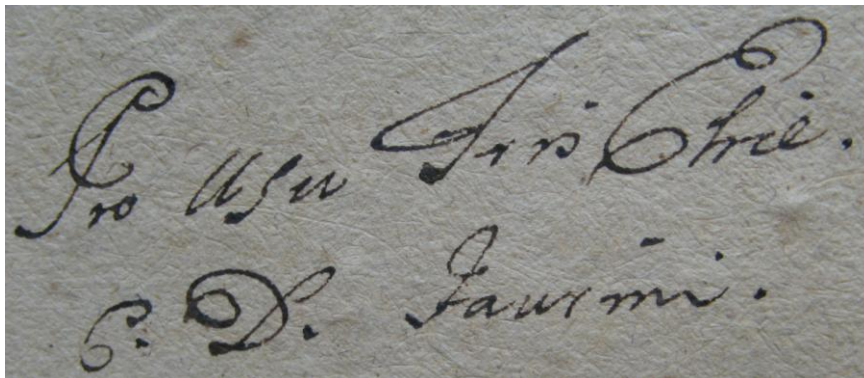 Pro usu Fris
C. D. Jaurini.